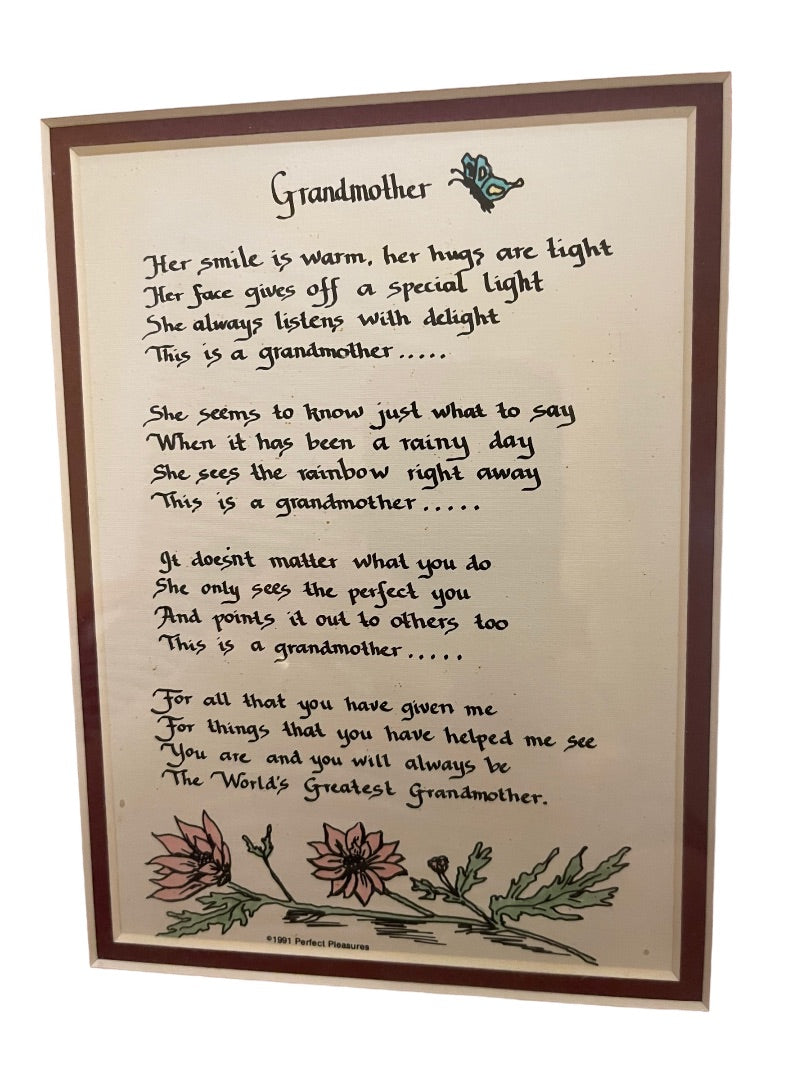 Grandmother
Her smile is warm, her hugs are tight
Her face gives off a special light
She always listens with delight
This is a grandmother.....
She seems to know just what to say
When it has been a rainy day
She sees the rainbow right away
This is a grandmother.....
It doesn't matter what you do
She only sees the perfect you
And points it out to others too
This is a grandmother.....
For all that you have given me
For things that you have helped me see
You are and you will always be
The World's Greatest Grandmother.
©1991 Perfect Pleasures